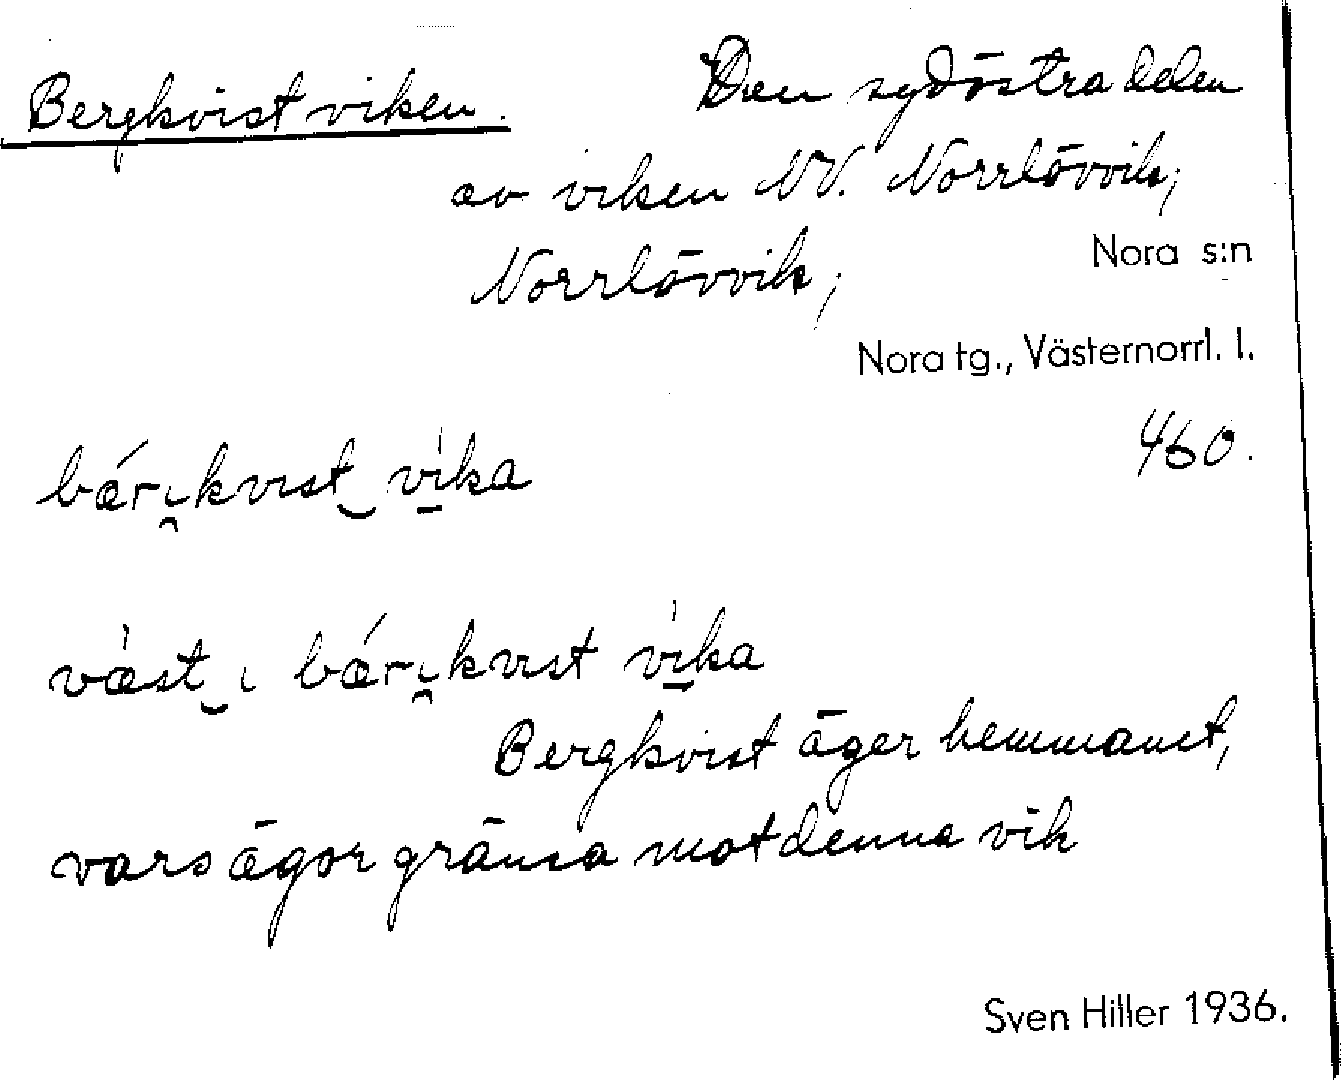 Bergkvistviken. Den sydöstra delen
av viken NV. Norrlövvik,
Norrlövvik, Nora s:n
Nora tg., Västernorrl. l.
460.
bǽrɩ̯kvɩst‿vìka
væ̀st‿ɩ bǽrɩ̯kvɩst vìka
Bergkvist äger hemmanet,
vars ägor gränsa mot denna vik
Sven Hiller 1936.